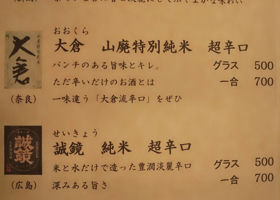 おおくら
大倉　山廃特別純米　超辛口
パンチのある旨味とキレ。　グラス　500
ただ辛いだけのお酒とは　一合　700
一味違う「大倉流辛口」をぜひ
大倉
(奈良)
せいきょう
誠鏡　純米　超辛口
米と水だけで造った豊潤淡麗辛口　グラス　500
深みある旨さ　一合　700
誠鏡
(広島)